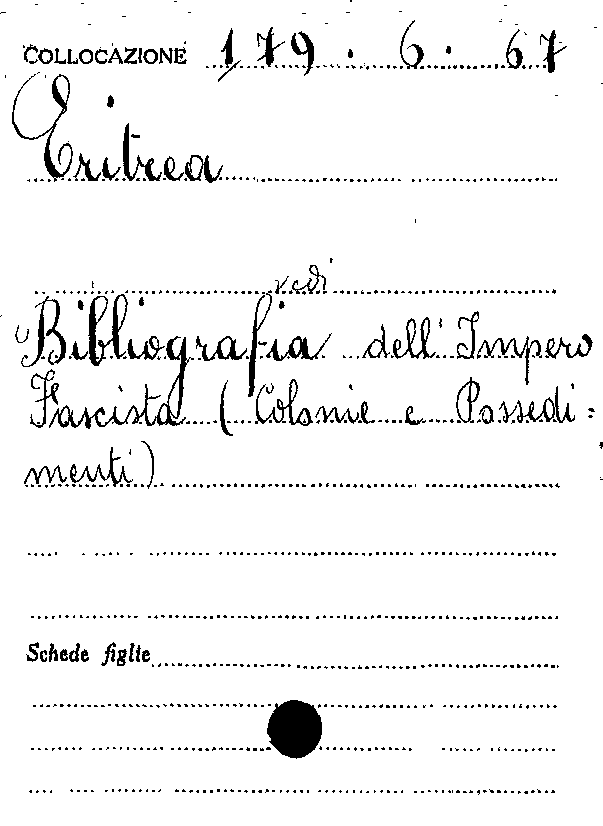 COLLOCAZIONE 179. 6. 67
Eritrea
vedi
Bibliografia dell'Impero
Fascista (Colonie e Possedi=
menti)
Schede figlie